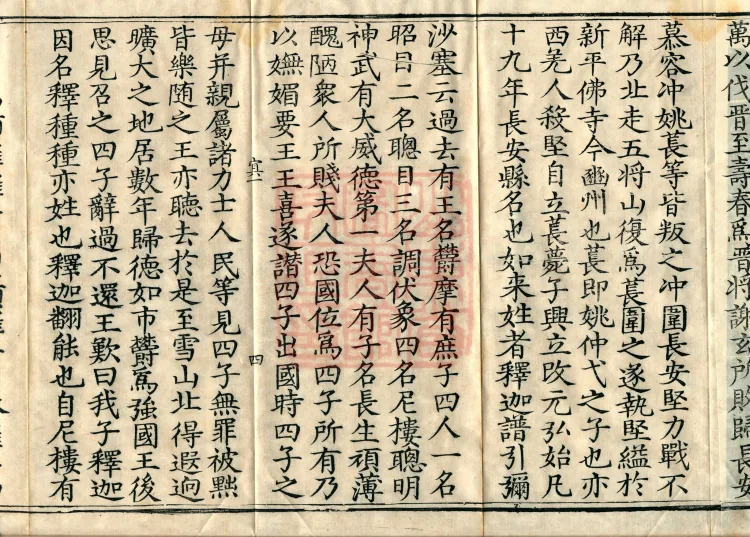 萬以伐晋至壽春爲晋将謝玄所敗歸長安
慕容冲姚萇等皆叛之冲圍長安堅力戰不
解乃北走五将山復爲萇圍之遂執堅縊於
新平佛寺今豳州也萇即姚仲弋之子也亦
西羌人殺堅自立萇薨子興立改元弘始凡
十九年長安縣名也如来姓者釋迦譜引彌
沙塞云過去有王名欝摩有庶子四人一名
昭目二名聰目三名調伏象四名尼樓聰明
神武有大威德第一夫人有子名長生頑薄
醜陋衆人所賤夫人恐國位爲四子所有乃
以嫵媚要王王喜遂譖四子出國時四子之
寘一
四
母并親屬諸力士人民等見四子無罪被黜
皆樂随之王亦聽去於是至雪山北得遐逈
曠大之地居數年歸德如市欝爲強國王後
思見召之四子辭過不還王歎曰我子釋迦
因名釋種種亦姓也釋迦翻能也自尼樓有